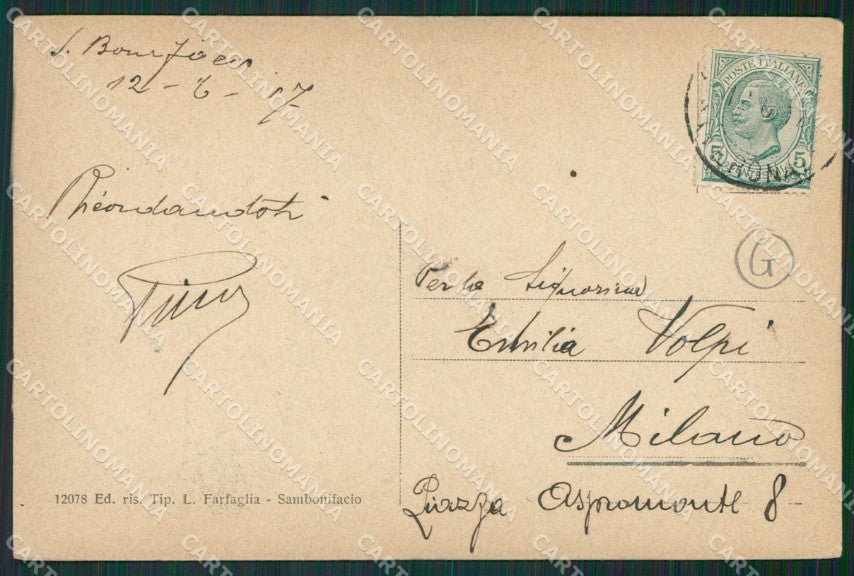 S. Bonifacio
12 - 6 - 17
Ricordandoti
Pina
POSTE ITALIANE
5
5
VERONA
G
Per la Signorina
Emilia Volpi
Milano
Piazza Aspromonte 8
12078 Ed. ris. Tip. L. Farfaglia - Sambonifacio
CARTOLINOMANIA